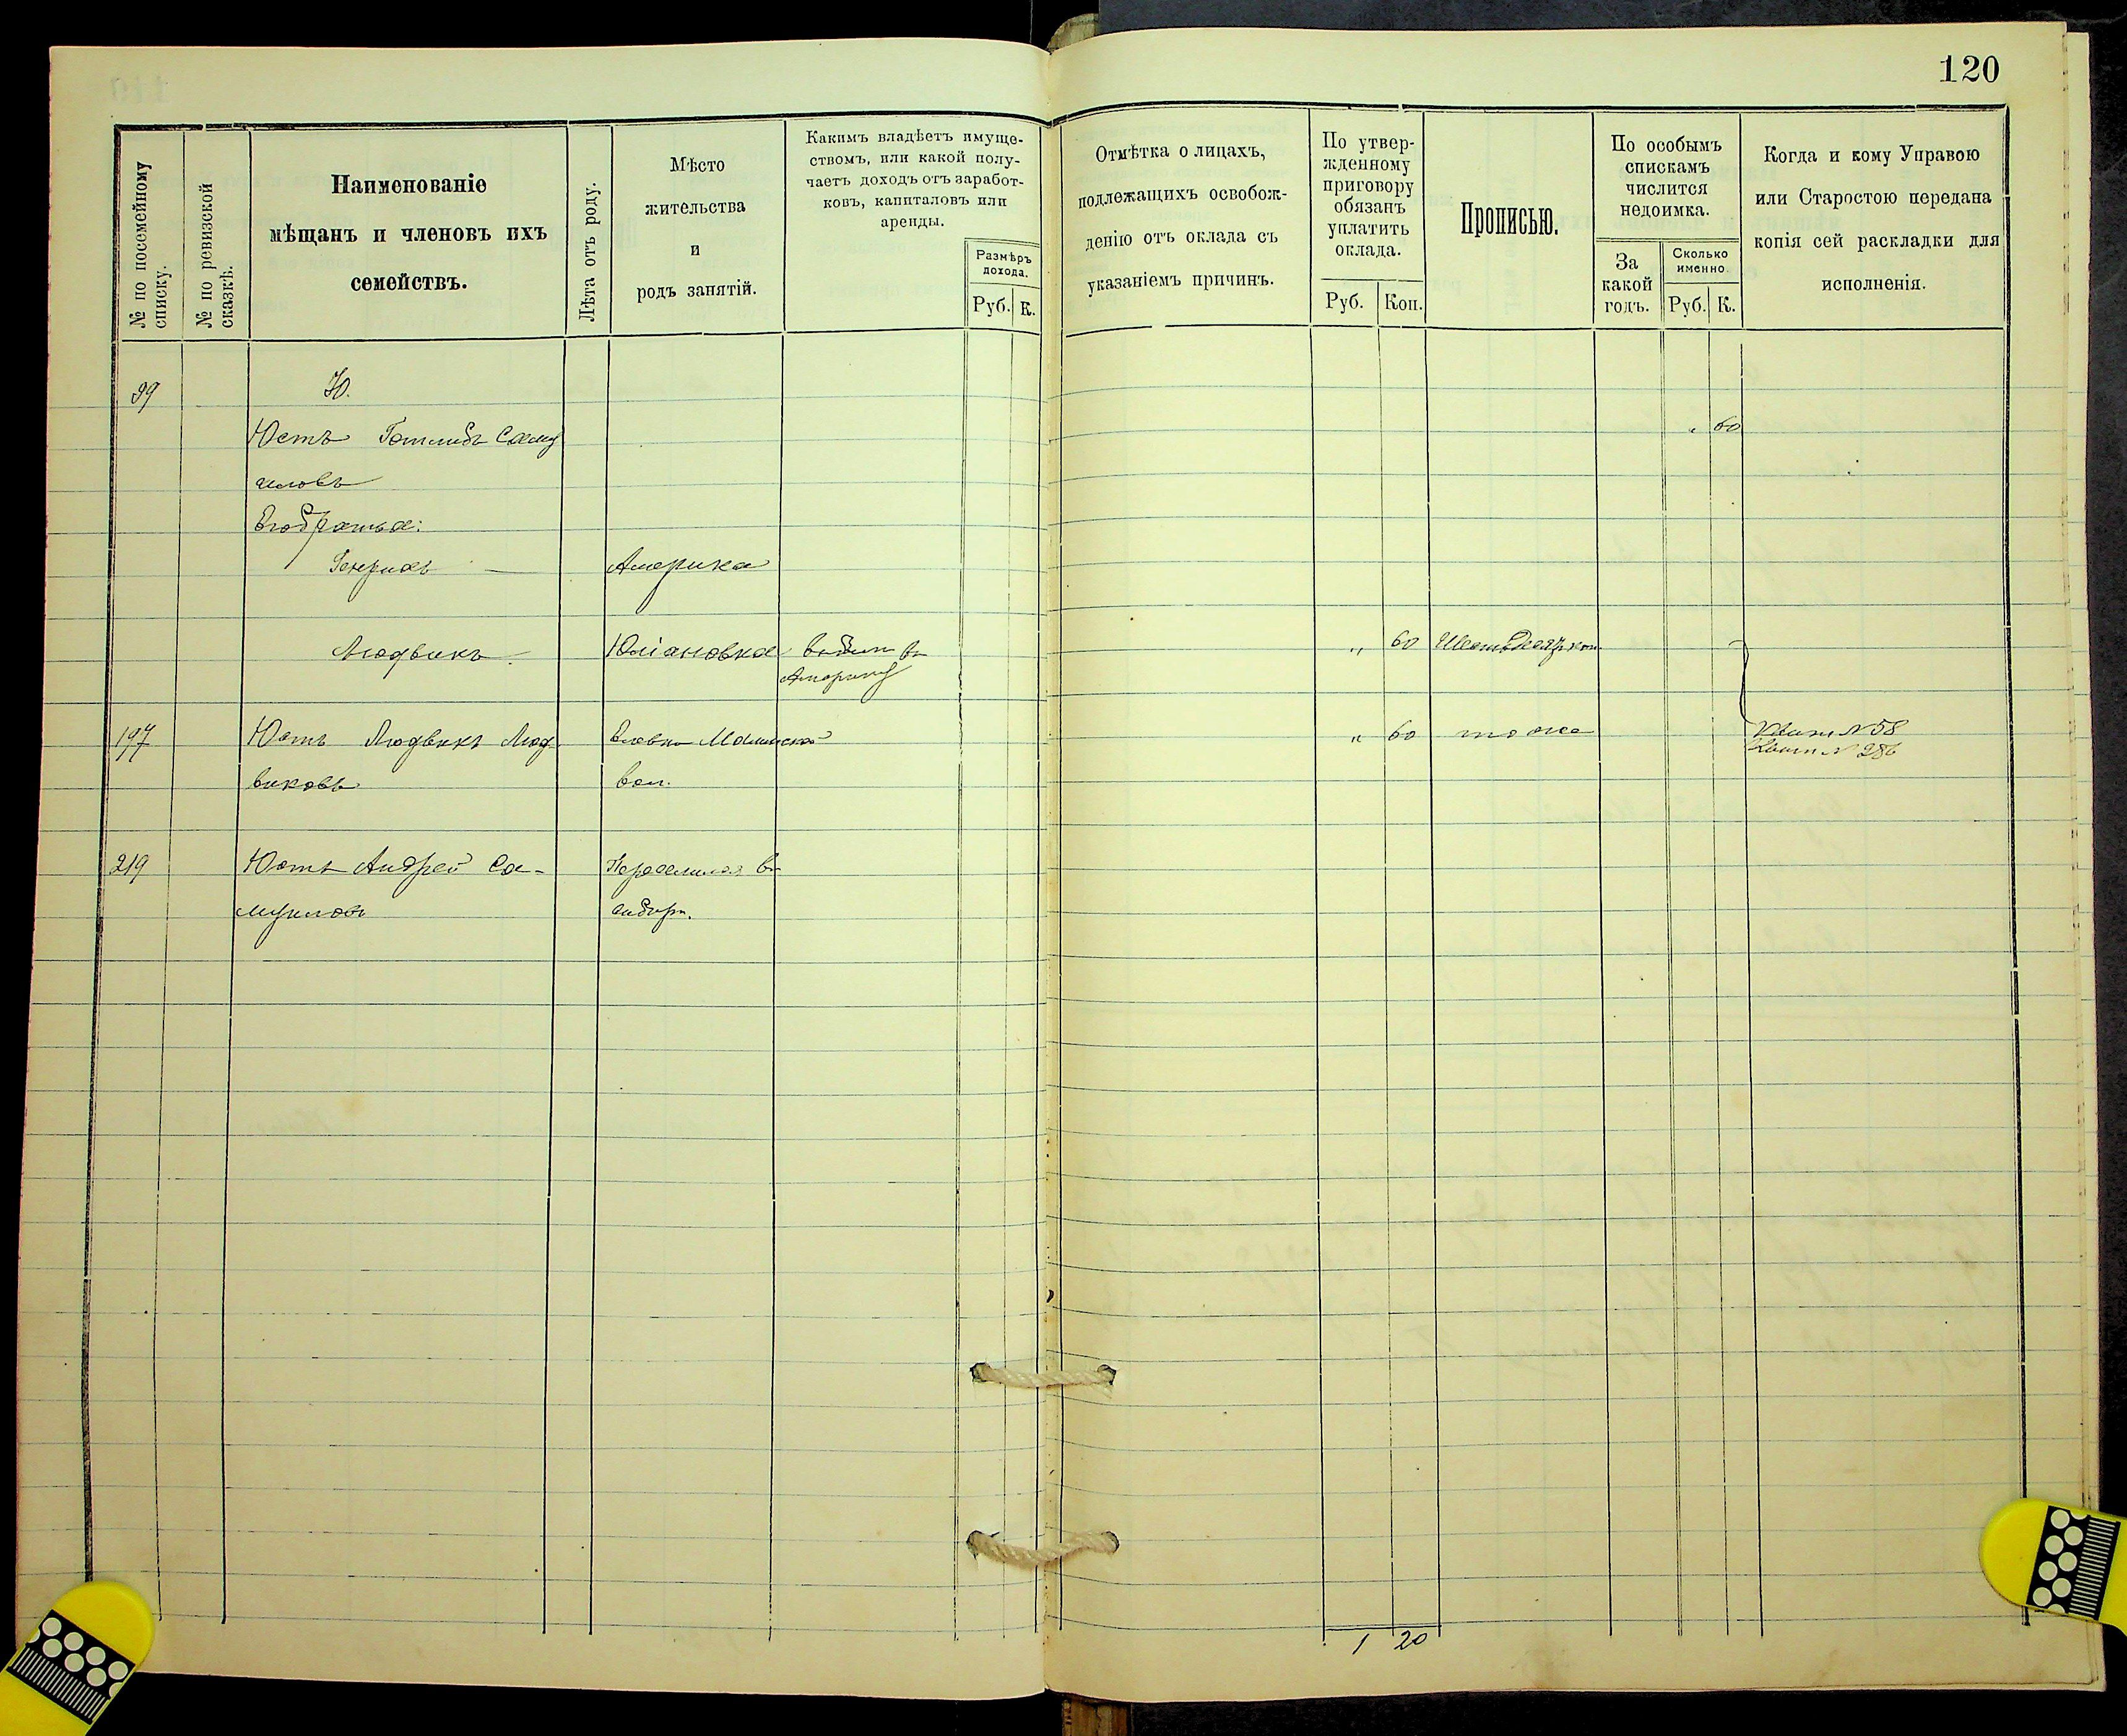 120
№ по посемейному
списку.
№ по ревизской
сказкѣ.
Наименованіе
мѣщанъ и членовъ ихъ
семействъ.
Лѣта отъ роду.
Мѣсто
жительства
и
родъ занятій.
Какимъ владѣетъ имуще-
ствомъ, или какой полу-
чаетъ доходъ отъ заработ-
ковъ, капиталовъ или
аренды.
Размѣръ
дохода.
Руб. К.
Отмѣтка о лицахъ,
подлежащихъ освобож-
денію отъ оклада съ
указаніемъ причинъ.
По утвер-
жденному
приговору
обязанъ
уплатить
оклада.
Руб. Коп.
Прописью.
По особымъ
спискамъ
числится
недоимка.
За
какой
годъ.
Сколько
именно.
Руб. К.
Когда и кому Управою
или Старостою передана
копія сей раскладки для
исполненія.
99 Ю.
Юстъ Готлибъ Саму " 60
иловъ
Его братья:
Генрихъ — Америка
Людвикъ. Юліановка въ
Америку " 60 Шестьдесят коп.
197 Юстъ Людвикъ Люд " 60 тоже Квит № 58
виковъ вол. № 286
219 Юстъ Андрей Са- Переселился въ
муиловъ Сибирь.
1 20